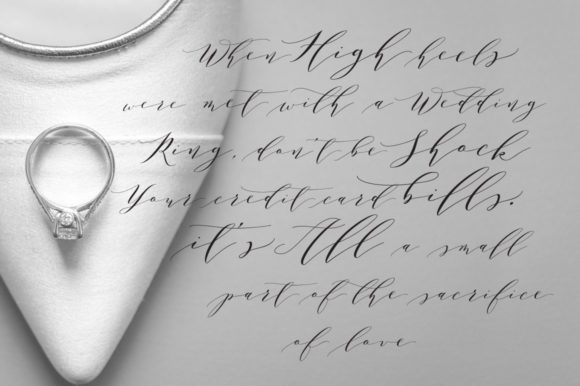 When High heels
were met with a Wedding
Ring, don't be Shock
Your credit card bills.
it's All a small
part of the sacrifice
of love